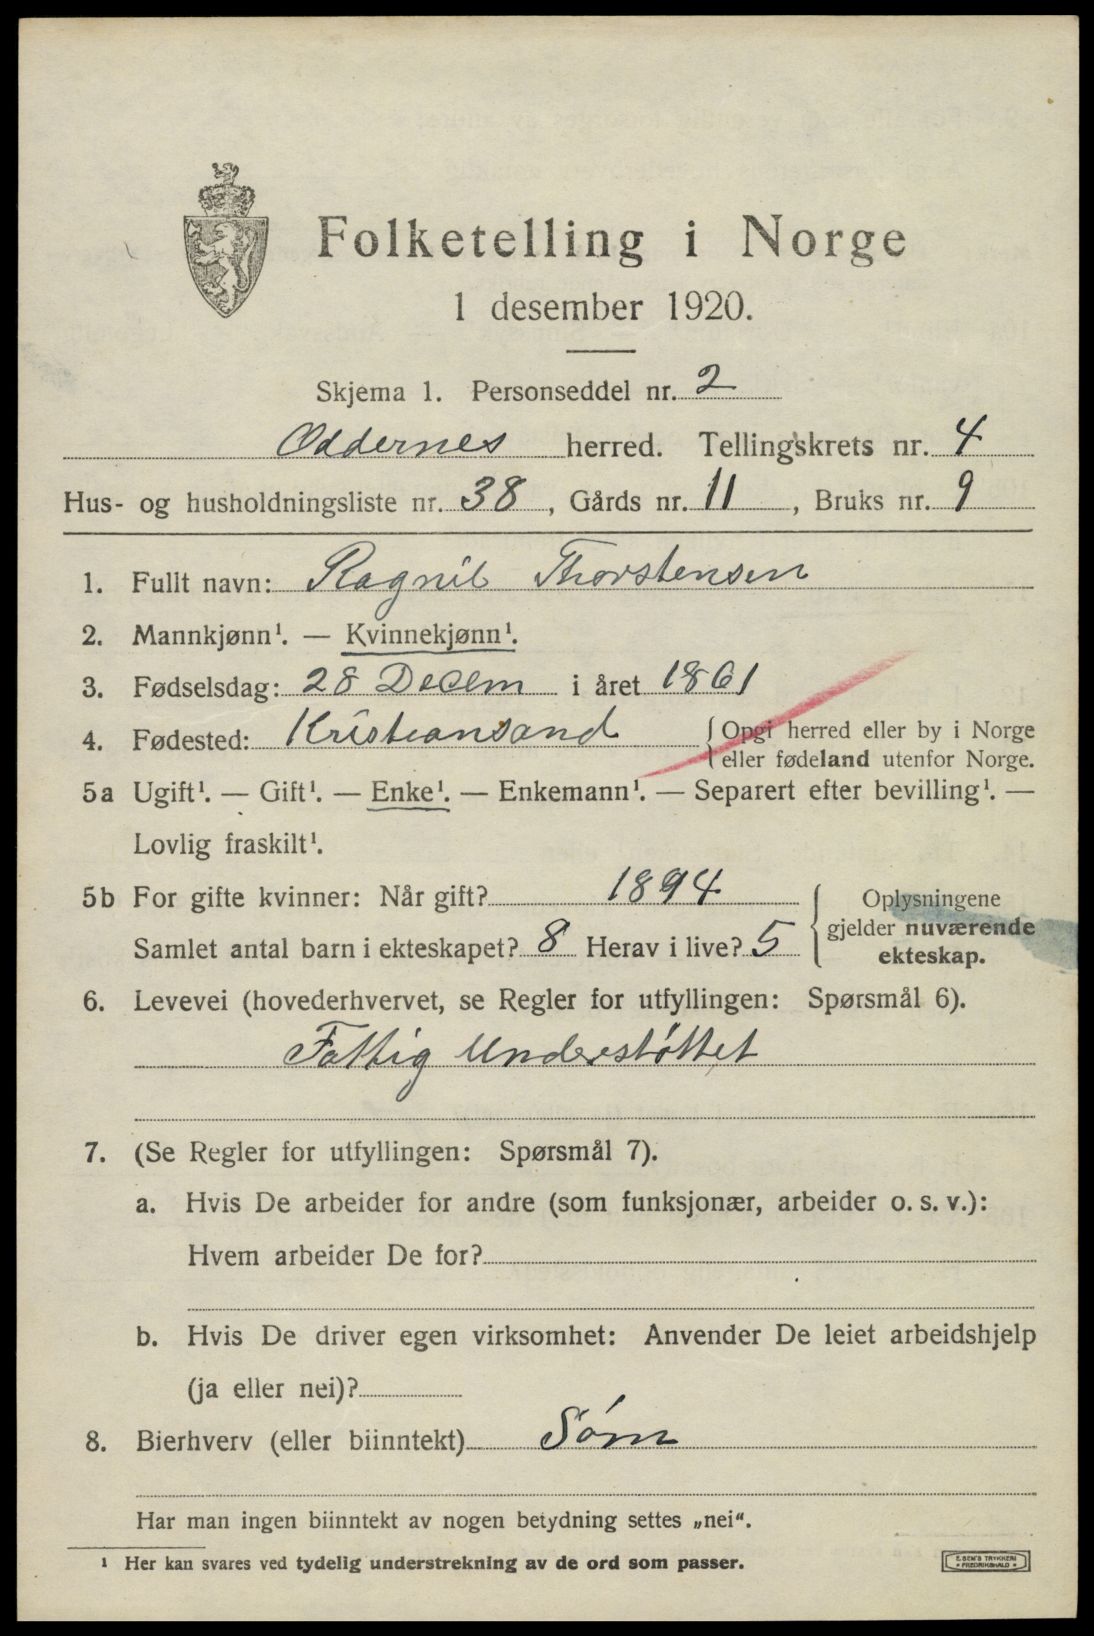 Folketelling i Norge
1 desember 1920.
Skjema 1. Personseddel nr. 2
Oddernes herred. Tellingskrets nr. 4
Hus- og husholdningsliste nr. 38, Gårds nr. 11, Bruks nr. 9
1. Fullt navn: Ragnil Thorstensen
2. Mannkjønn¹. — Kvinnekjønn¹.
3. Fødselsdag: 28 Decem i året 1861
4. Fødested: Kristeansand { Opgi herred eller by i Norge
eller fødeland utenfor Norge.
5a Ugift¹. — Gift¹. — Enke¹. — Enkemann¹. — Separert efter bevilling¹. —
Lovlig fraskilt¹.
5b For gifte kvinner: Når gift? 1894
Samlet antal barn i ekteskapet? 8 Herav i live? 5
{ Oplysningene
gjelder nuværende
ekteskap.
6. Levevei (hovederhvervet, se Regler for utfyllingen: Spørsmål 6).
Fattig Understøttet
7. (Se Regler for utfyllingen: Spørsmål 7).
a. Hvis De arbeider for andre (som funksjonær, arbeider o. s. v.):
Hvem arbeider De for?
b. Hvis De driver egen virksomhet: Anvender De leiet arbeidshjelp
(ja eller nei)?
8. Bierhverv (eller biinntekt) Søm
Har man ingen biinntekt av nogen betydning settes „nei“.
¹ Her kan svares ved tydelig understrekning av de ord som passer.
E. SEM'S TRYKKERI
FREDRIKSHALD